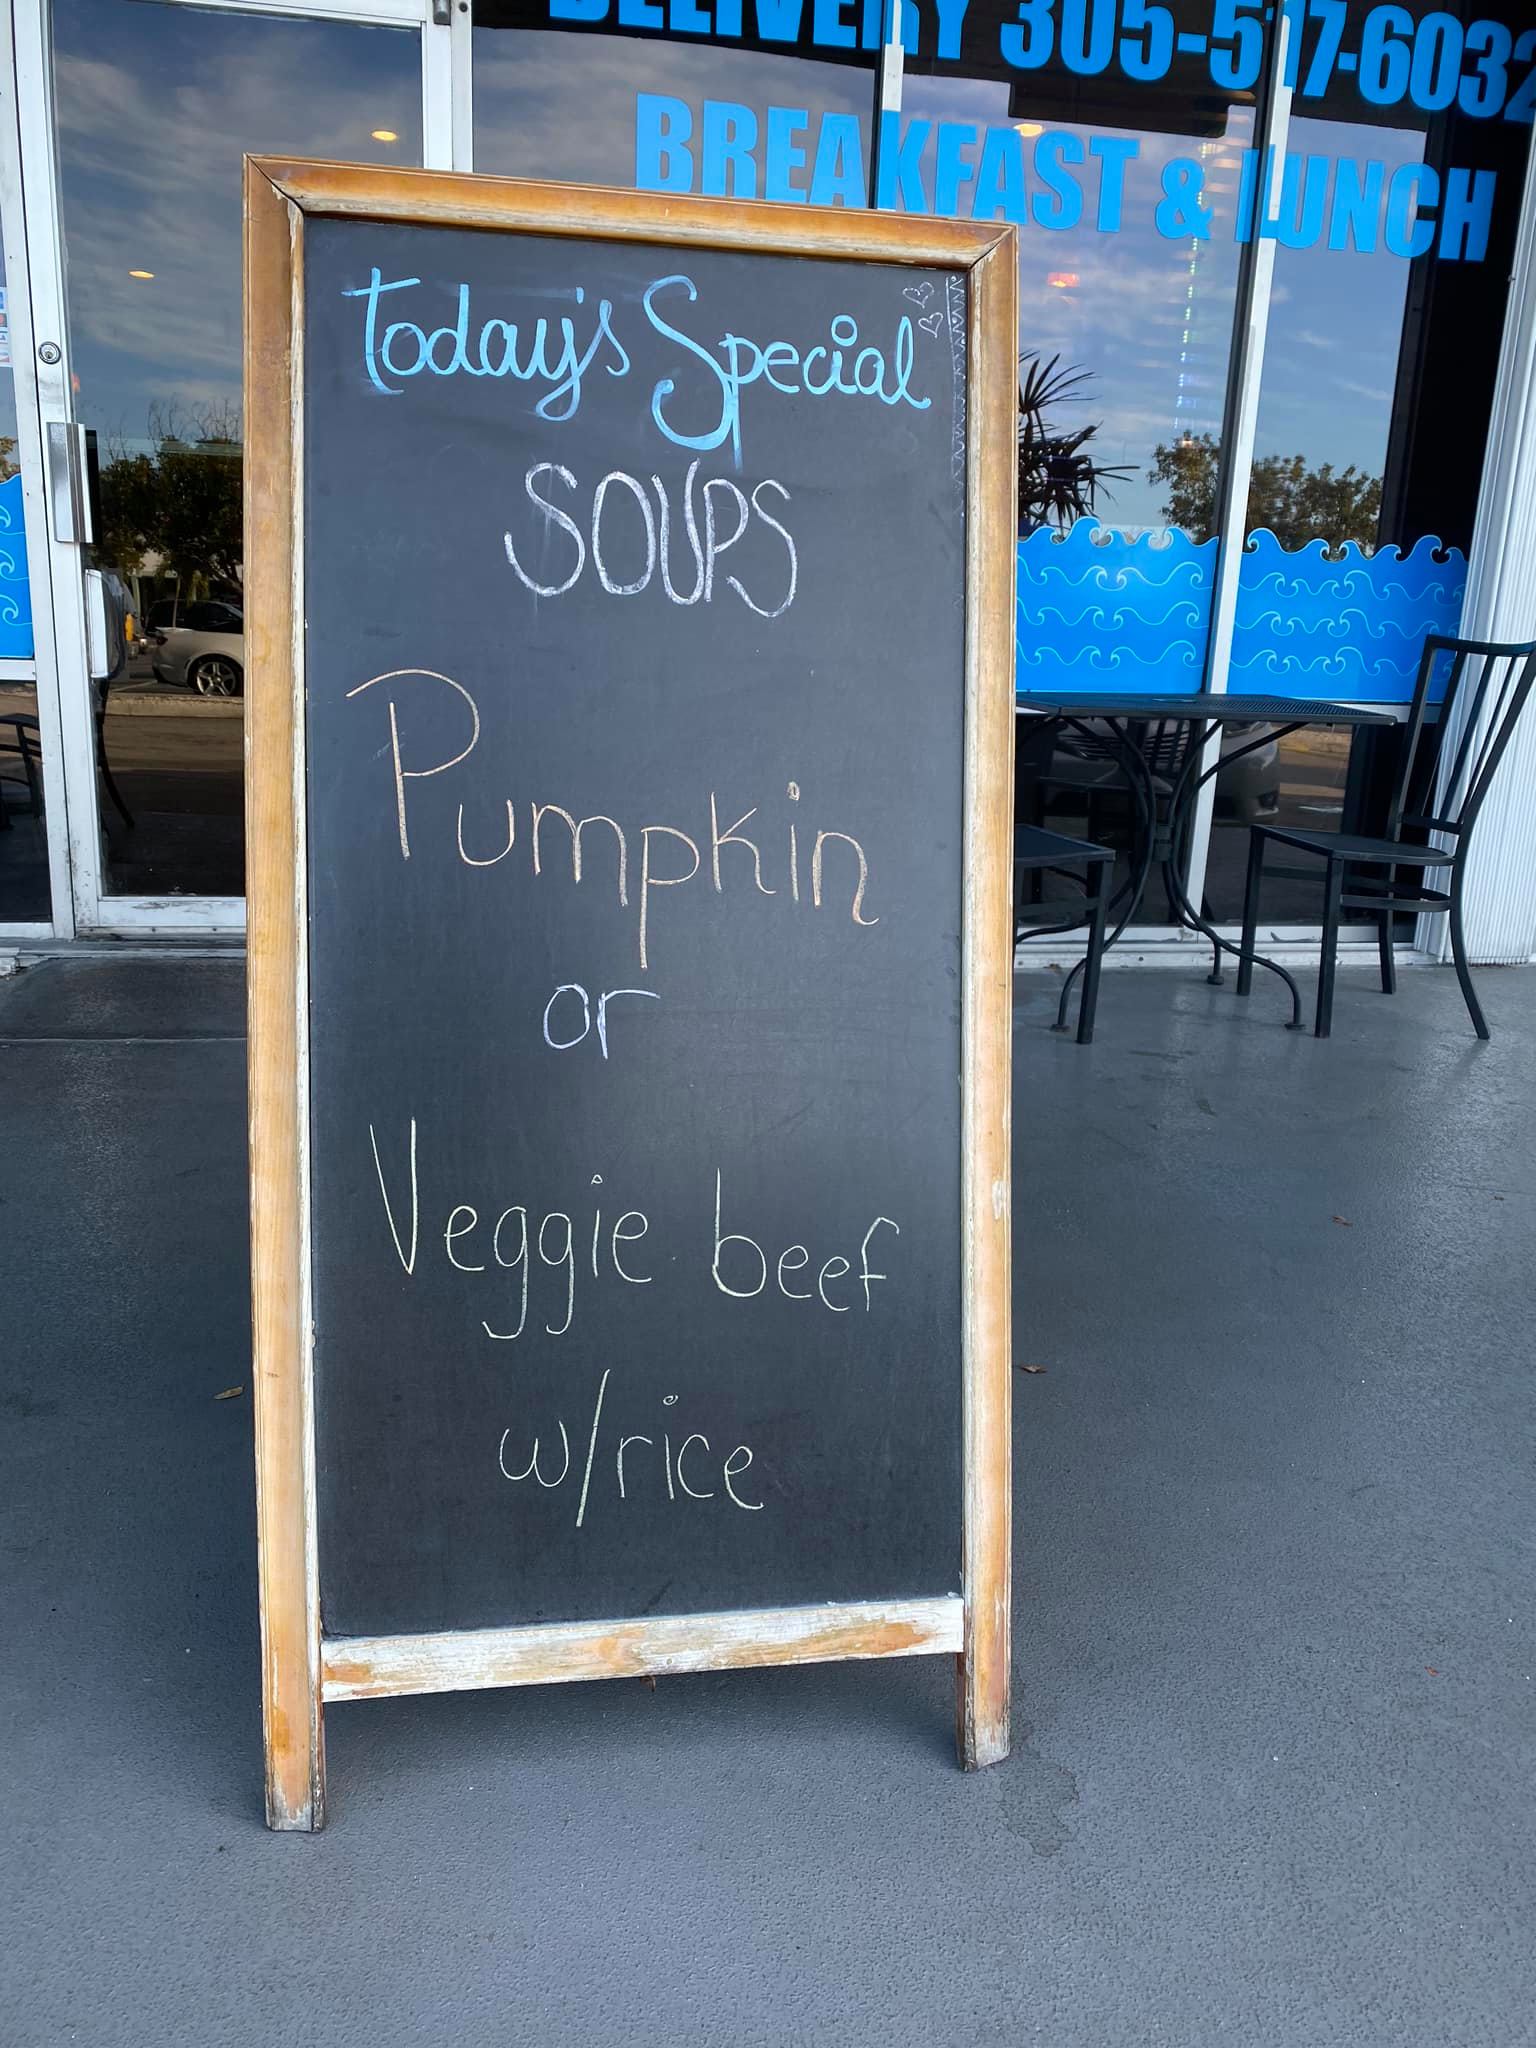 DELIVERY 305-517-6032
BREAKFAST & LUNCH
Today's Special
SOUPS
Pumpkin
or
Veggie beef
w/rice